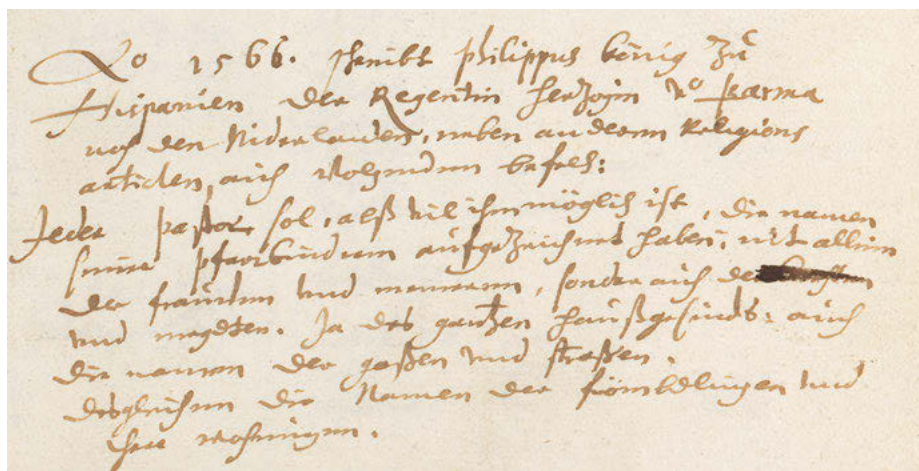 Ao 1566. schribt Philippus König zů
Hispanien der Regentin hertzogin vo Parma
uss den Niderlanden, neben anderen Religions
articlen, auch volgenden befelch:
Jeder pastor sol, alss vil ihm möglich ist, die namen
siner pfarrkinderen aufgezeichnet haben, nit allein
der frauwen und menneren, sonder auch der
und megdten. Ja des gantzen haussgesinds: auch
die namen der gassen und strassen.
desglichen die Namen der frömbdlingen und
ihre wohningen.